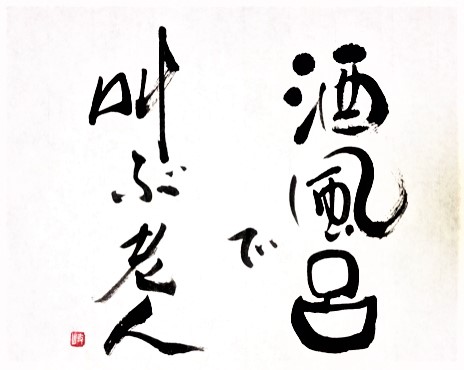 酒風呂
で
叫ぶ老人